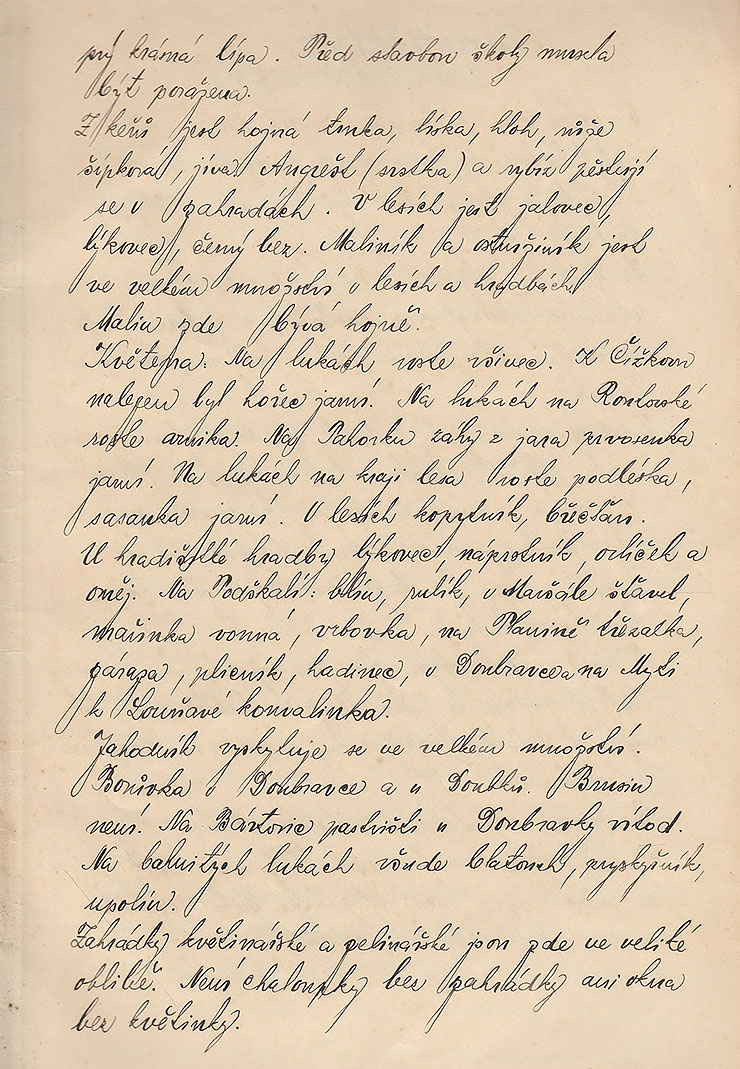 prý krásná lípa. Před stavbou školy musela
být poražena.
Z keřů jest hojná trnka, líska, hloh, růže
šípková, jíva. Angrešt (srstka) a rybíz pěstují
se v zahradách. V lesích jest jalovec,
lýkovec, černý bez. Maliník a ostružiník jest
ve velkém množství v lesích a hradbách.
Malin zde bývá hojně.
Květena: Na lukách roste všivec. K Čížkovu
nalezen byl hořec jarní. Na lukách na
roste arnika. Na Pahorku záhy z jara prvosenka
jarní. Na lukách na kraji lesa roste podléška,
sasanka jarní. V lesích kopytník, břečťan.
U hradišťké hradby lýkovec, náprstník, orlíček a
oměj. Na Podškalí: blín, rulík, v Maršále šťavel,
mařinka vonná, vrbovka, na Planině třezalka,
plicník, hadinec, v Doubravce a na Mýti
k Louňavé konvalinka.
Jahodník vyskytuje se ve velkém množství.
Borůvka v Doubravce a u Doubků. Brusin
není. Na pastvišti u Doubravky vítod.
Na bahnitých lukách všude blatouch, pryskyřník,
upolín.
Zahrádky květinářské a zelinářské jsou zde ve veliké
oblibě. Není chaloupky bez zahrádky ani okna
bez květinky.